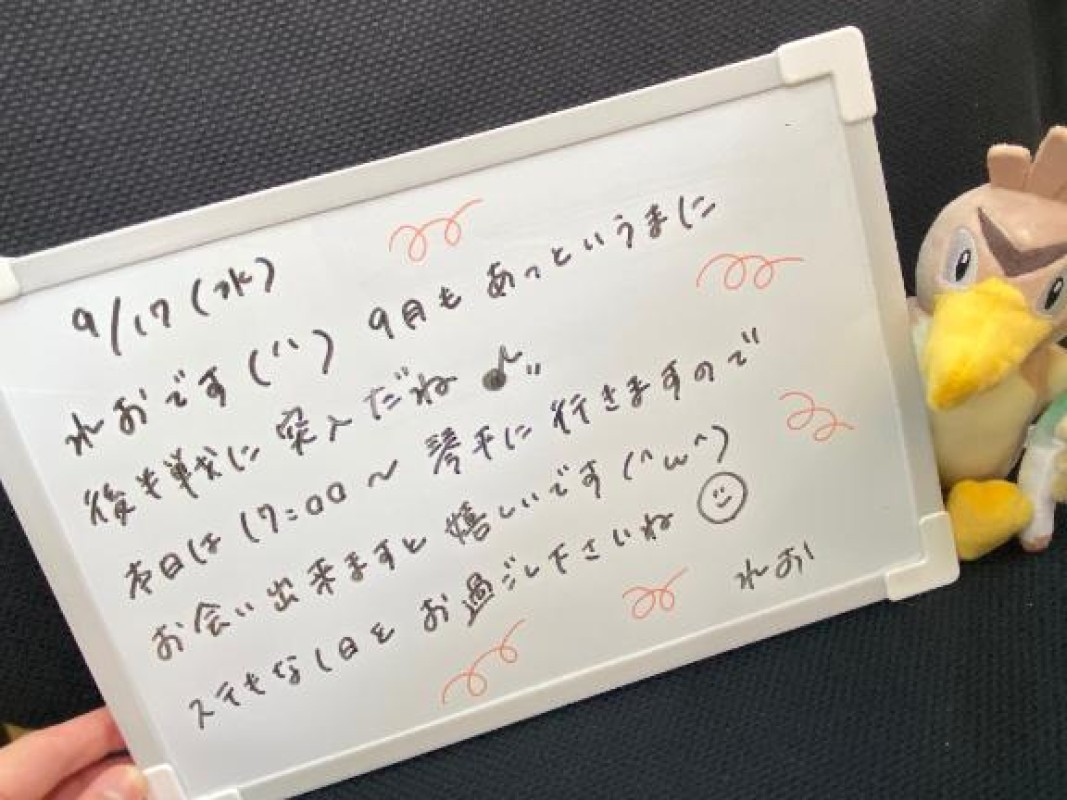 9/17(水)
れおです(^^) 9月もあっというまに
後半戦に突入だね♪
本日は17:00〜琴平に行きますので
お会い出来ますと嬉しいです(^ω^)
ステキな1日をお過ごし下さいね☺
れお